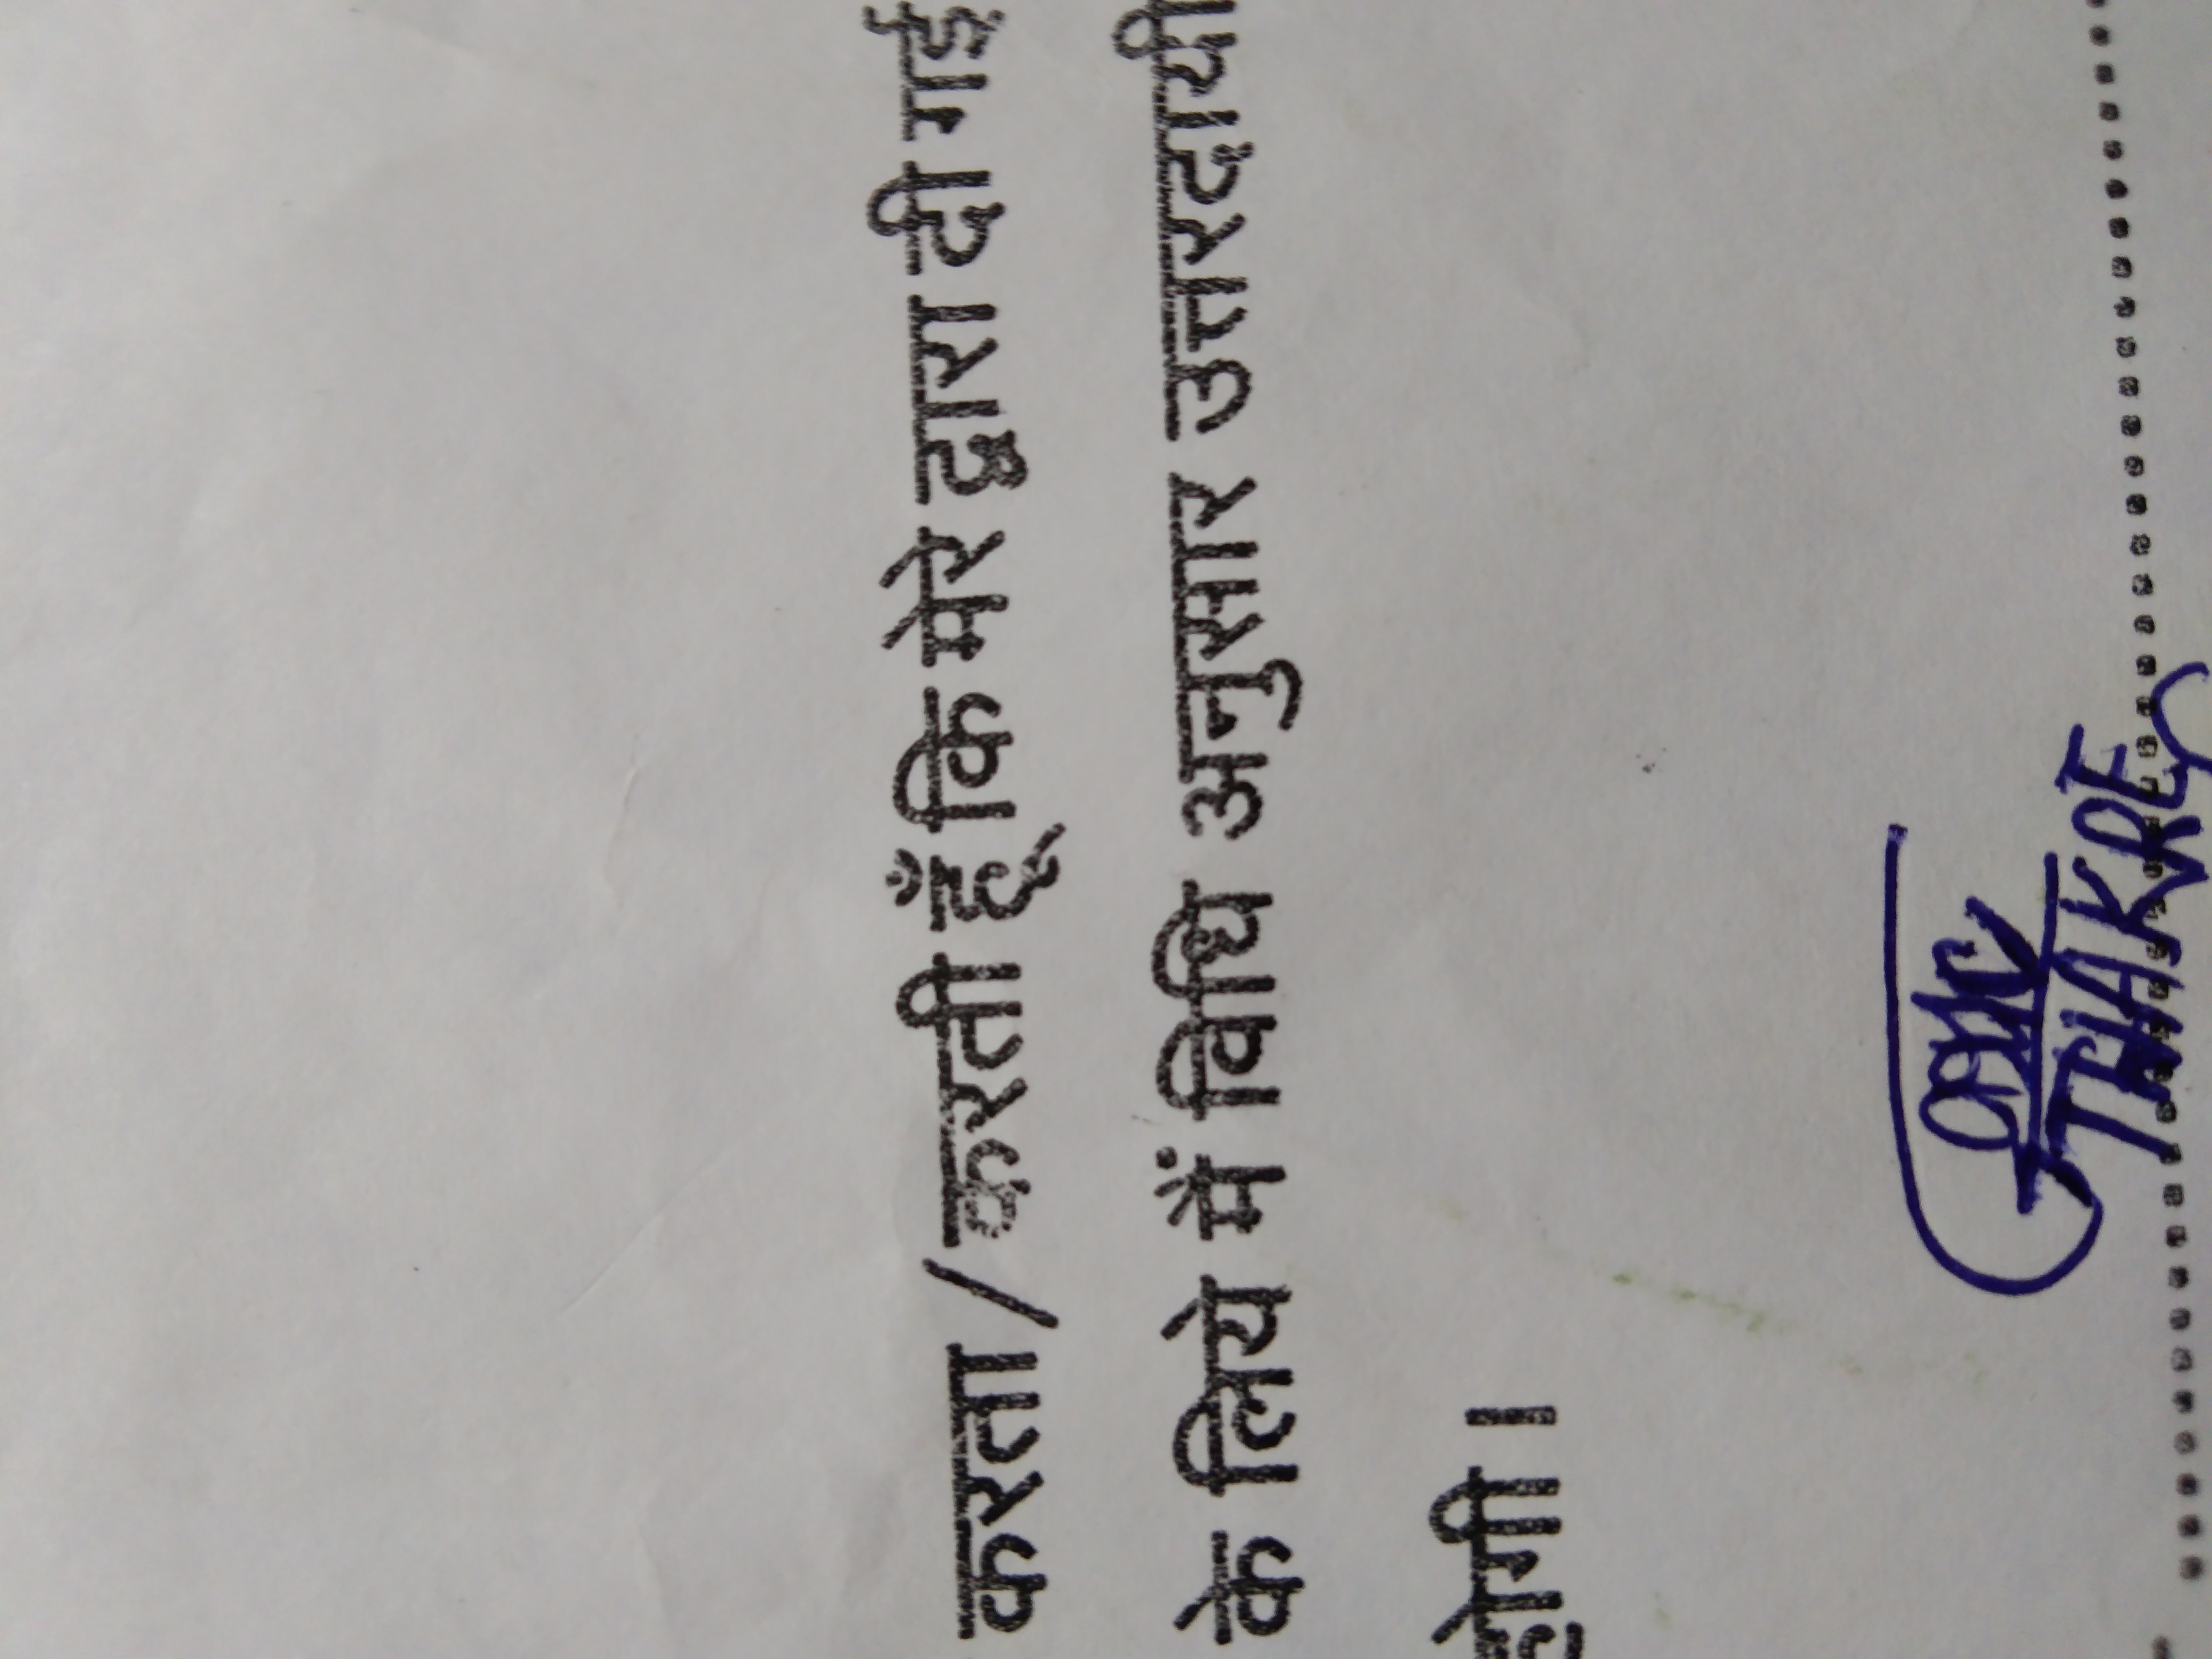 करता / करती हूँ कि मेरे द्वारा दी गई
के लिये मैं विधि अनुसार उत्तरदायी
होगी।
THAKRE